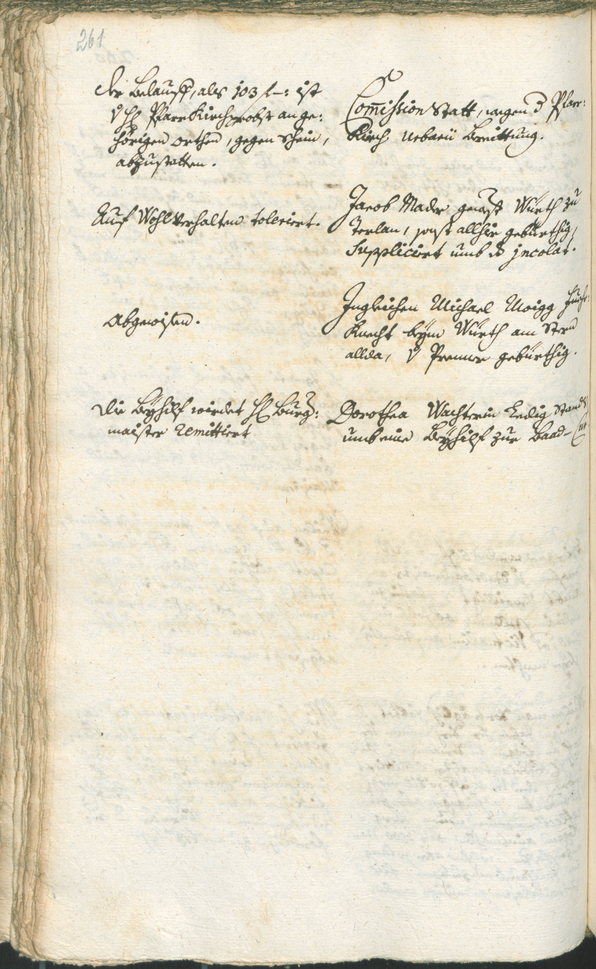 261
Der Belauff, als 103 f –: ist
Pfarrkirchprobst ange:
hörigen orthen, gegen schein,
abzustatten.
Comission statt, wegen d Pfarr:
Kirch Urbarii Berichtung.
Auf Wohlverhalten toleriert.
Jacob Mader gewest Würth zu
Terlan, sonst allhie gebürthig,
Suppliciert umb d Jncolat.
Abgewisen.
Jngleichen Michael Moigg Hauß:
Knecht beym Würth am Stern
allda, gebürthig.
Die Beyhilf wirdet H Burg:
maister remittiert
Dorothea Wachterin Ledig Stands
umb eine Beyhilf zur Baad-